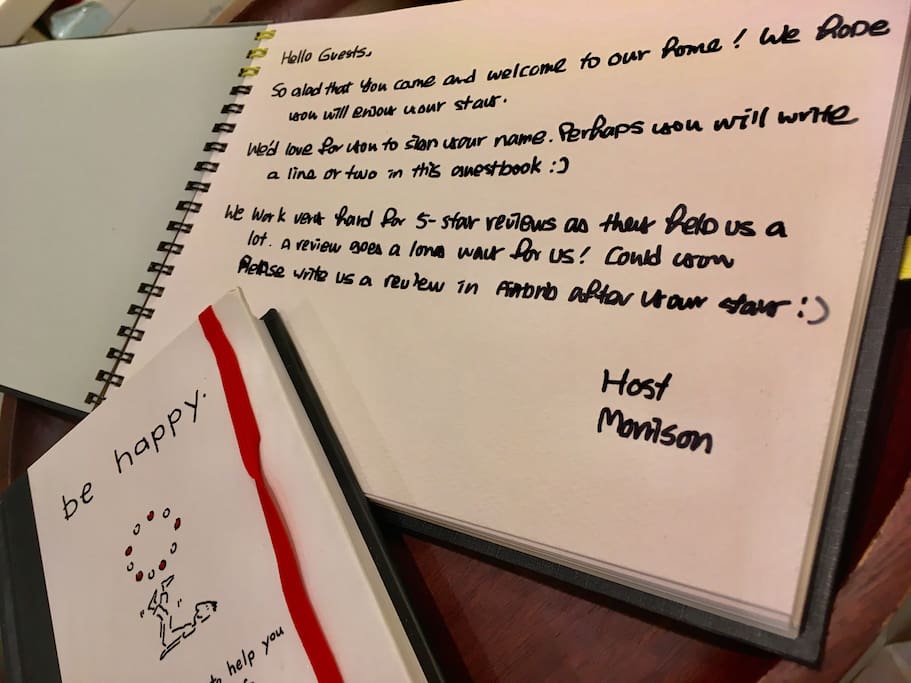 Hello Guests,
So glad that you came and welcome to our home! We hope
you will enjoy your stay.
We'd love for you to sign your name. Perhaps you will write
a line or two in this guestbook :)
We work very hard for 5-star reviews as they help us a
lot. A review goes a long way for us! Could you
Please write us a review in Airbnb after your stay :)
Host
Morrison
be happy.
to help you